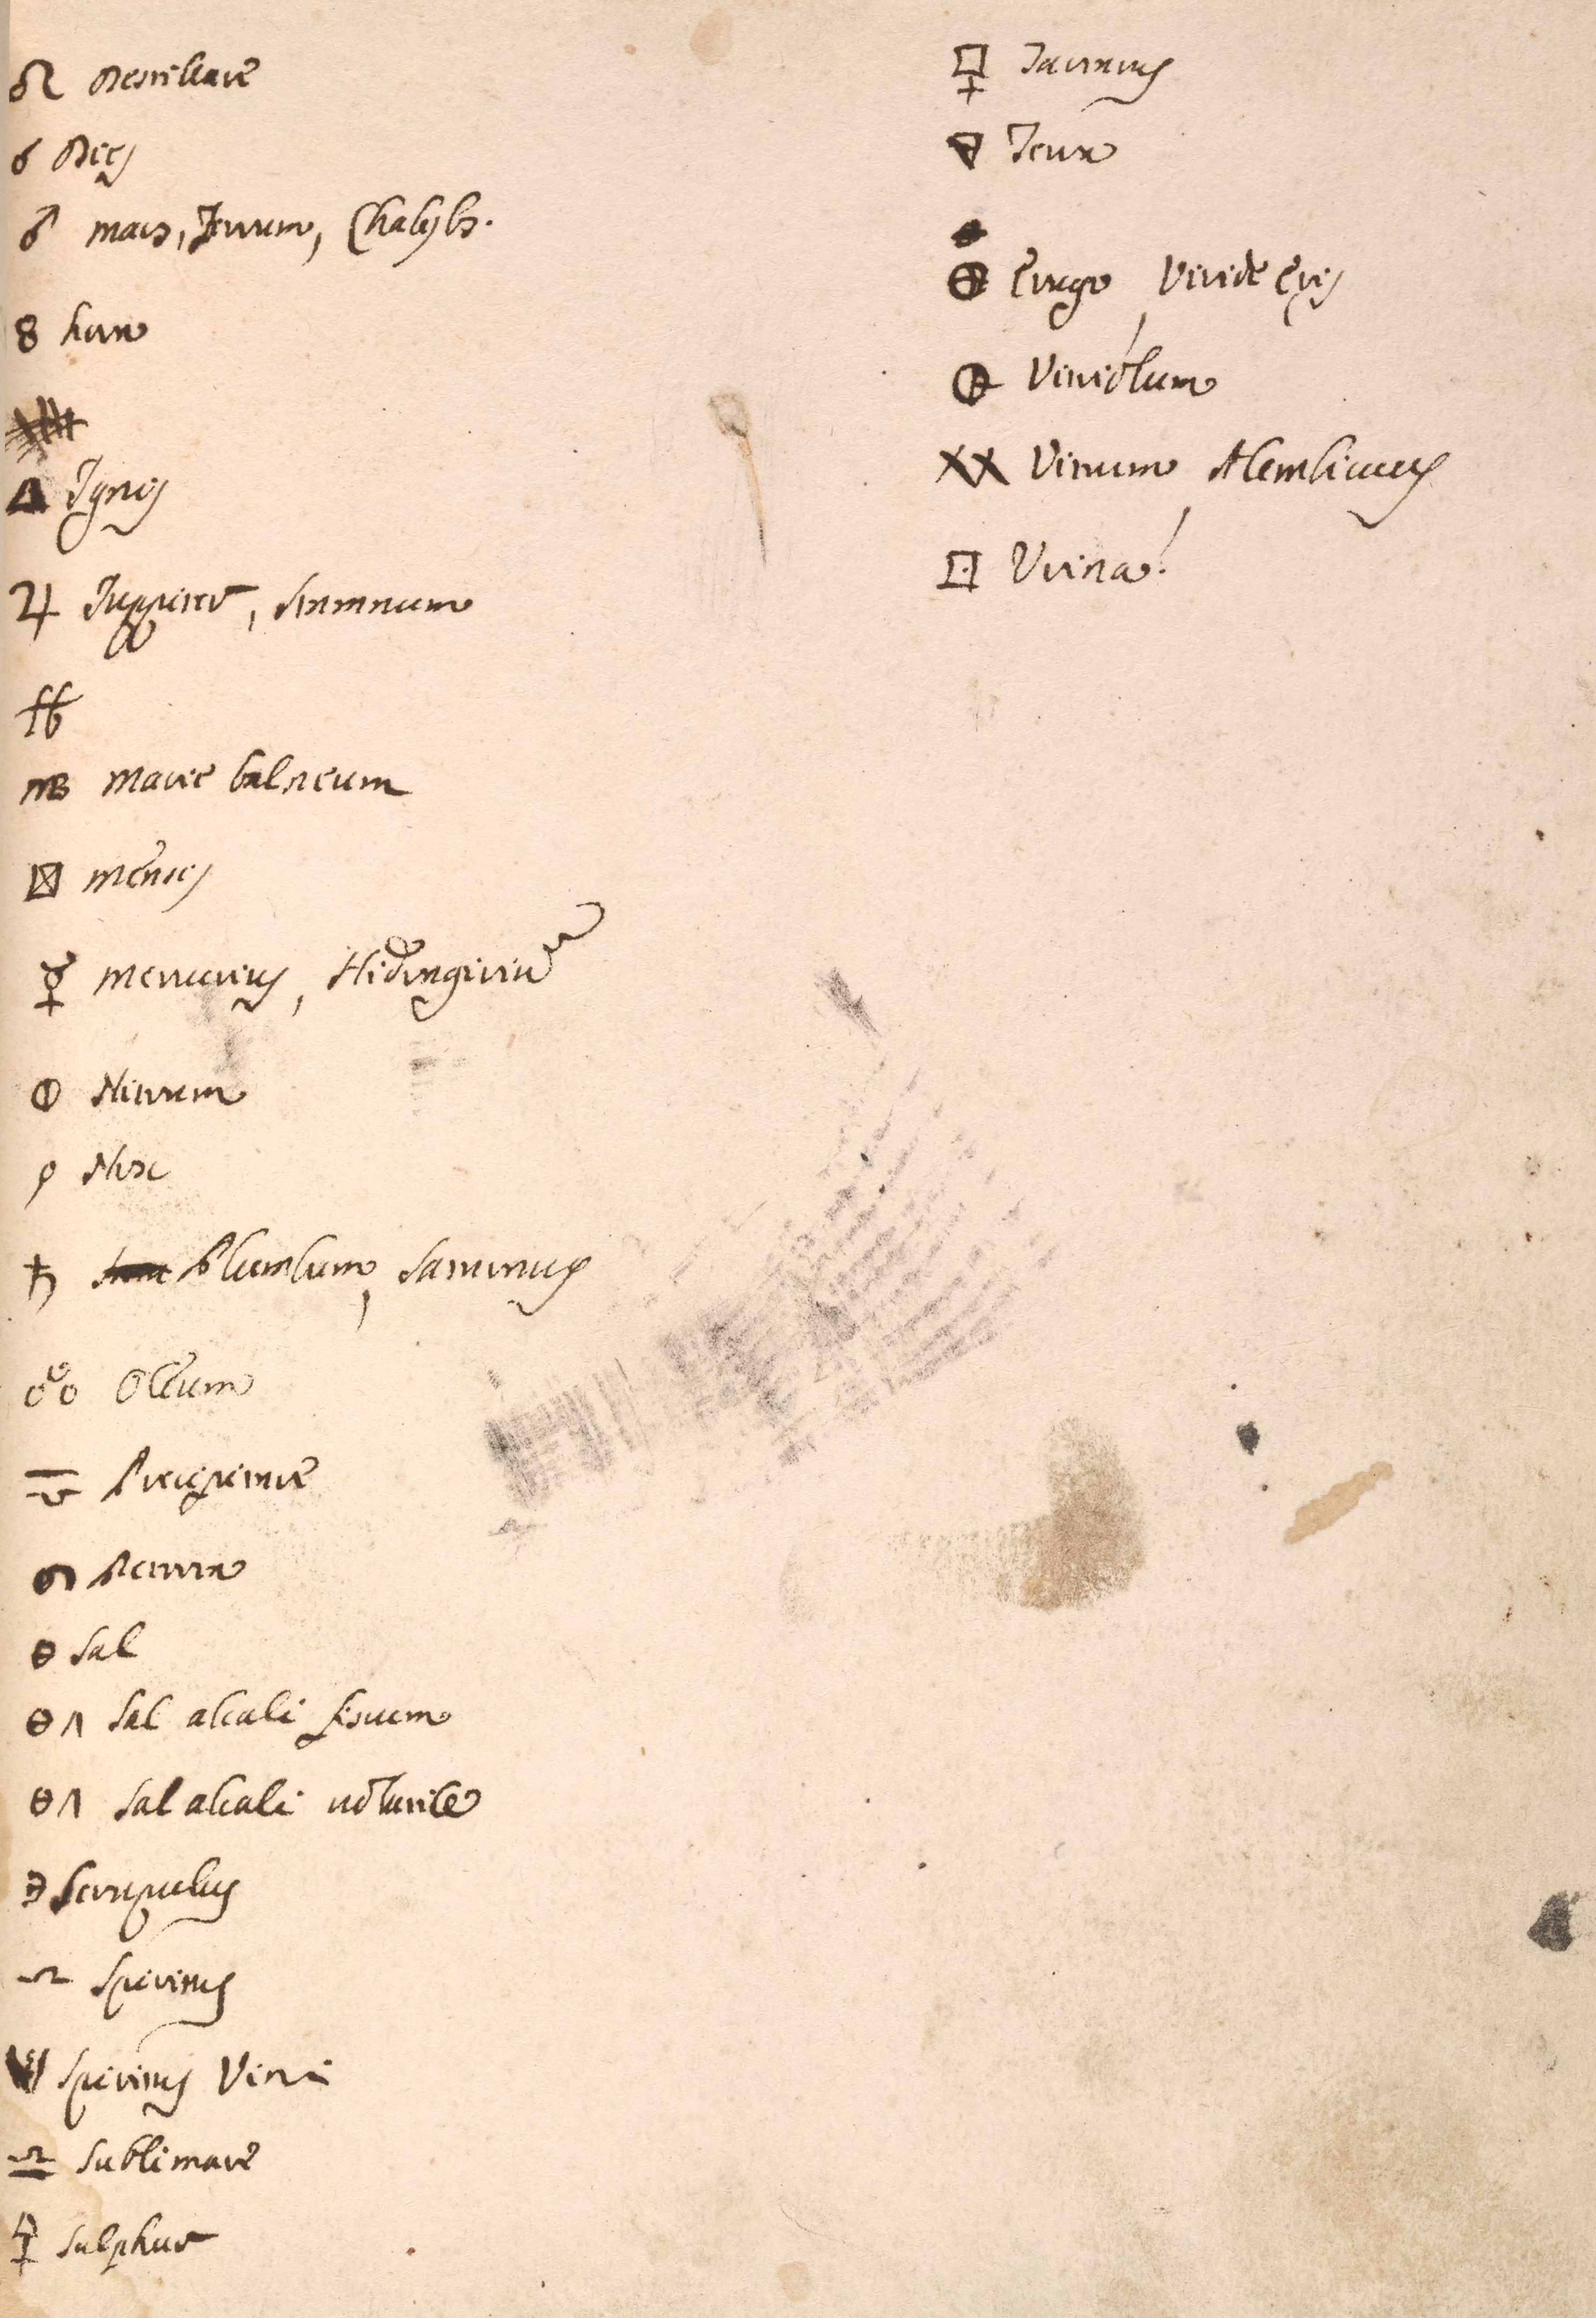 ♌ Destillare
Dies
♂ Mars, Ferrum, Chalybs.
8 hora
🜂 Ignis
♃ Juppiter, Stannum
MB Marie balneum
⊠ Mensis
☿ Mercurius, Hidrargiriu
⦶ Nitrum
Nox
♄ Plumbum, Saturnus
Oleum
Precipitare
Retorta
🜔 Sal
🜔 Λ Sal alcali fixum
🜔 Λ Sal alcali volatile
℈ Scrupulus
Spiritus
Spiritus Vini
Sublimare
🜍 Sulphur
Tartarus
🜃 Terra
⊕ Erugo, Viride Eris
Vitriolum
XX Vitrum, Alembicus
⊡ Urina.